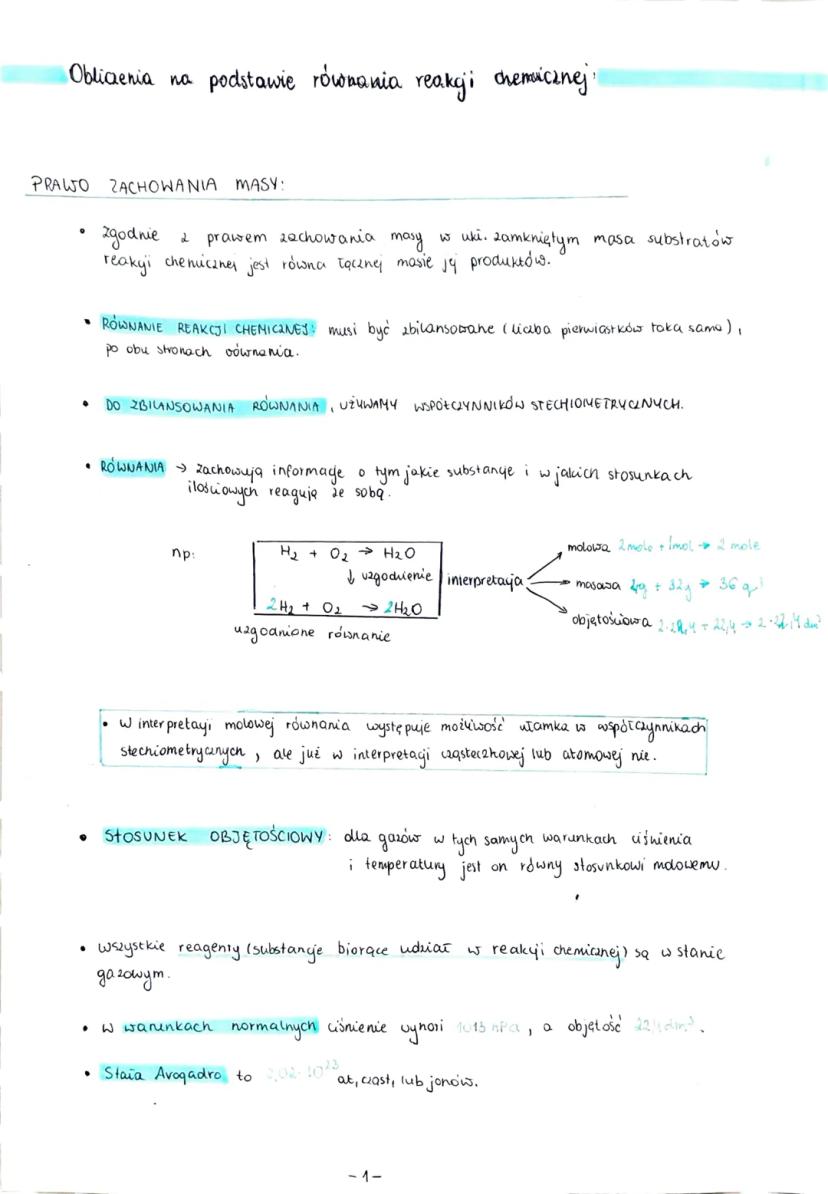 Obliczenia na podstawie równania reakcji chemicznej:
PRAWO ZACHOWANIA MASY:
• Zgodnie z prawem zachowania masy w ukł. zamkniętym masa substratów
reakcji chemicznej jest równa łącznej masie jej produktów.
• RÓWNANIE REAKCJI CHEMICZNEJ: musi być zbilansowane (liczba pierwiastków taka sama),
po obu stronach równania.
• DO ZBILANSOWANIA RÓWNANIA, UŻYWAMY WSPÓŁCZYNNIKÓW STECHIOMETRYCZNYCH.
• RÓWNANIA → zachowują informacje o tym jakie substancje i w jakich stosunkach
ilościowych reagują ze sobą.
np:
H₂ + O₂ → H₂O
↓ uzgodnienie
2H₂ + O₂ → 2H₂O
uzgodnione równanie
interpretacja
molowa 2mole + 1mol → 2 mole
masowa 4g + 32g → 36 g
objętościowa 2·22,4 + 22,4 → 2·22,4 dm³
• W interpretacji molowej równania występuje możliwość ułamka w współczynnikach
stechiometrycznych, ale już w interpretacji cząsteczkowej lub atomowej nie.
• STOSUNEK OBJĘTOŚCIOWY: dla gazów w tych samych warunkach ciśnienia
i temperatury jest on równy stosunkowi molowemu.
• Wszystkie reagenty (substancje biorące udział w reakcji chemicznej) są w stanie
gazowym.
• W warunkach normalnych ciśnienie wynosi 1013 hPa, a objętość 22,4dm³.
• Stała Avogadro to 6,02·10²³ at, cząst, lub jonów.
-1-